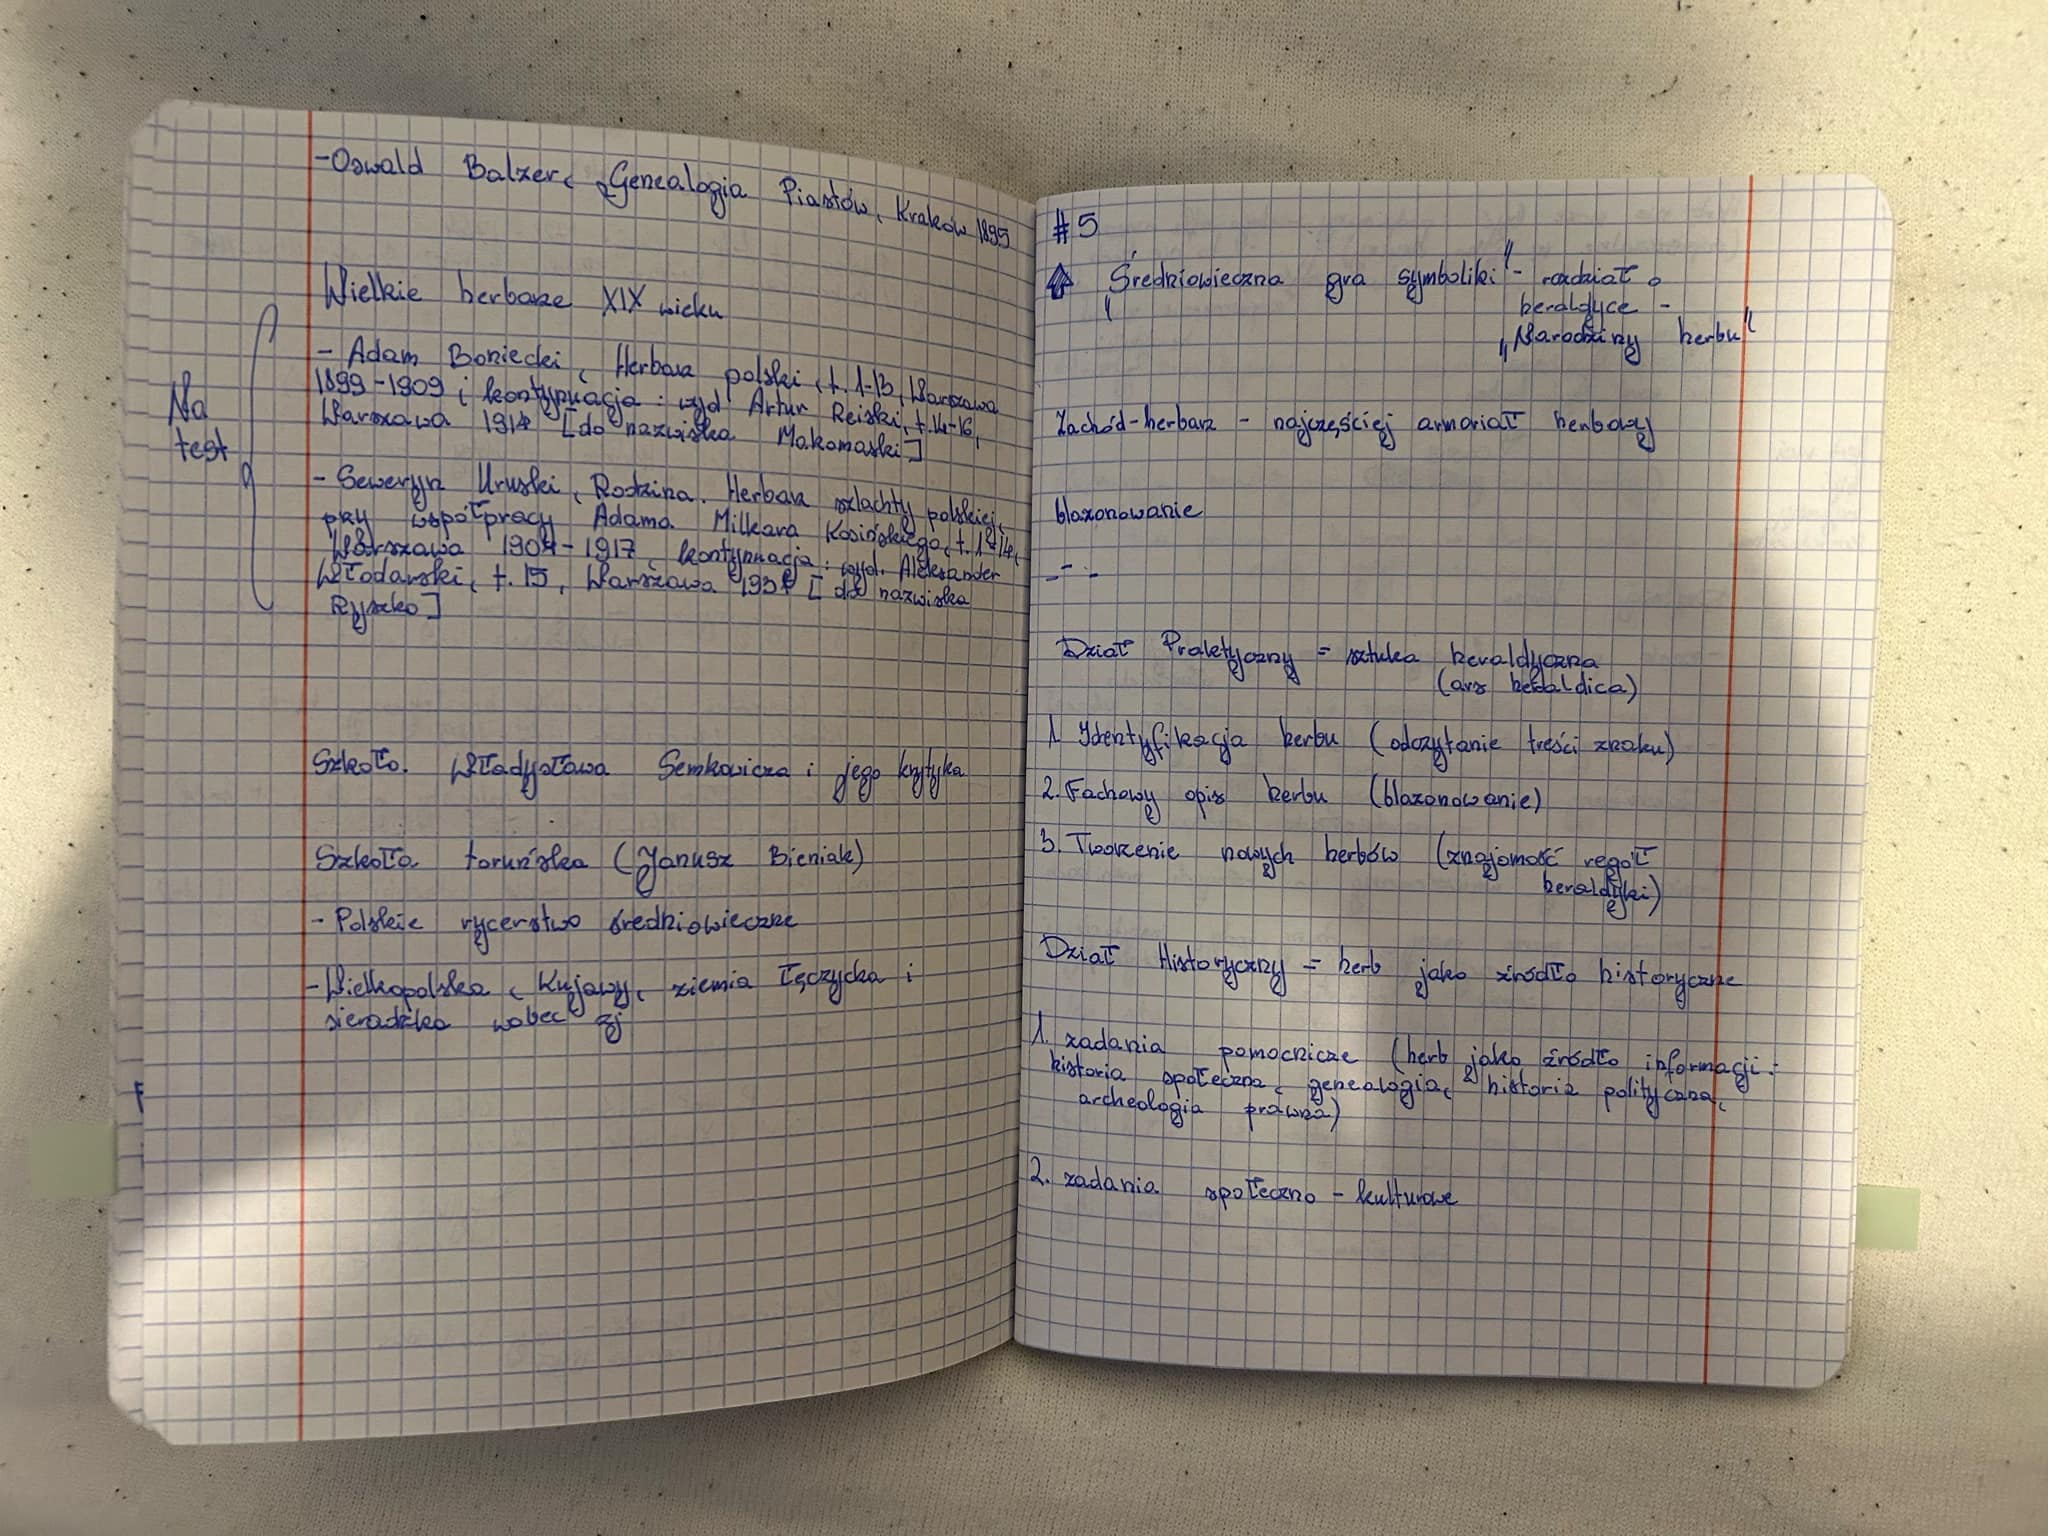 -Oswald Balzer, Genealogia Piastów, Kraków 1895
Wielkie herbarze XIX wieku
Na
test
- Adam Boniecki, Herbarz polski, t. 1-13, Warszawa
1899-1909 i kontynuacja: wyd Artur Reiski, t. 14-16,
Warszawa 1914 [do nazwiska Makomaski]
- Seweryn Uruski, Rodzina. Herbarz szlachty polskiej,
przy współpracy Adama Milkara Kosińskiego, t. 1-14,
Warszawa 1904-1917, kontynuacja: wyd. Aleksander
Włodarski, t. 15, Warszawa [do nazwiska
Ryszko]
Szkoła Władysława Semkowicza i jego krytyka
Szkoła toruńska (Janusz Bieniak)
- Polskie rycerstwo średniowieczne
- Wielkopolska, Kujawy, ziemia łęczycka i
sieradzka wobec
#5
"Średniowieczna gra symboliki" - rozdział o
heraldyce -
"Narodziny herbu"
Zachód-herbarz - najczęściej armoriał herbowy
blazonowanie
- - -
Dział Praktyczny = sztuka heraldyczna
(ars heraldica)
1. Identyfikacja herbu (odczytanie treści znaku)
2. Fachowy opis herbu (blazonowanie)
3. Tworzenie nowych herbów (znajomość reguł
heraldyki)
Dział Historyczny = herb jako źródło historyczne
1. zadania pomocnicze (herb jako źródło informacji:
historia społeczna, genealogia, historia polityczna,
archeologia prawna)
2. zadania społeczno-kulturowe